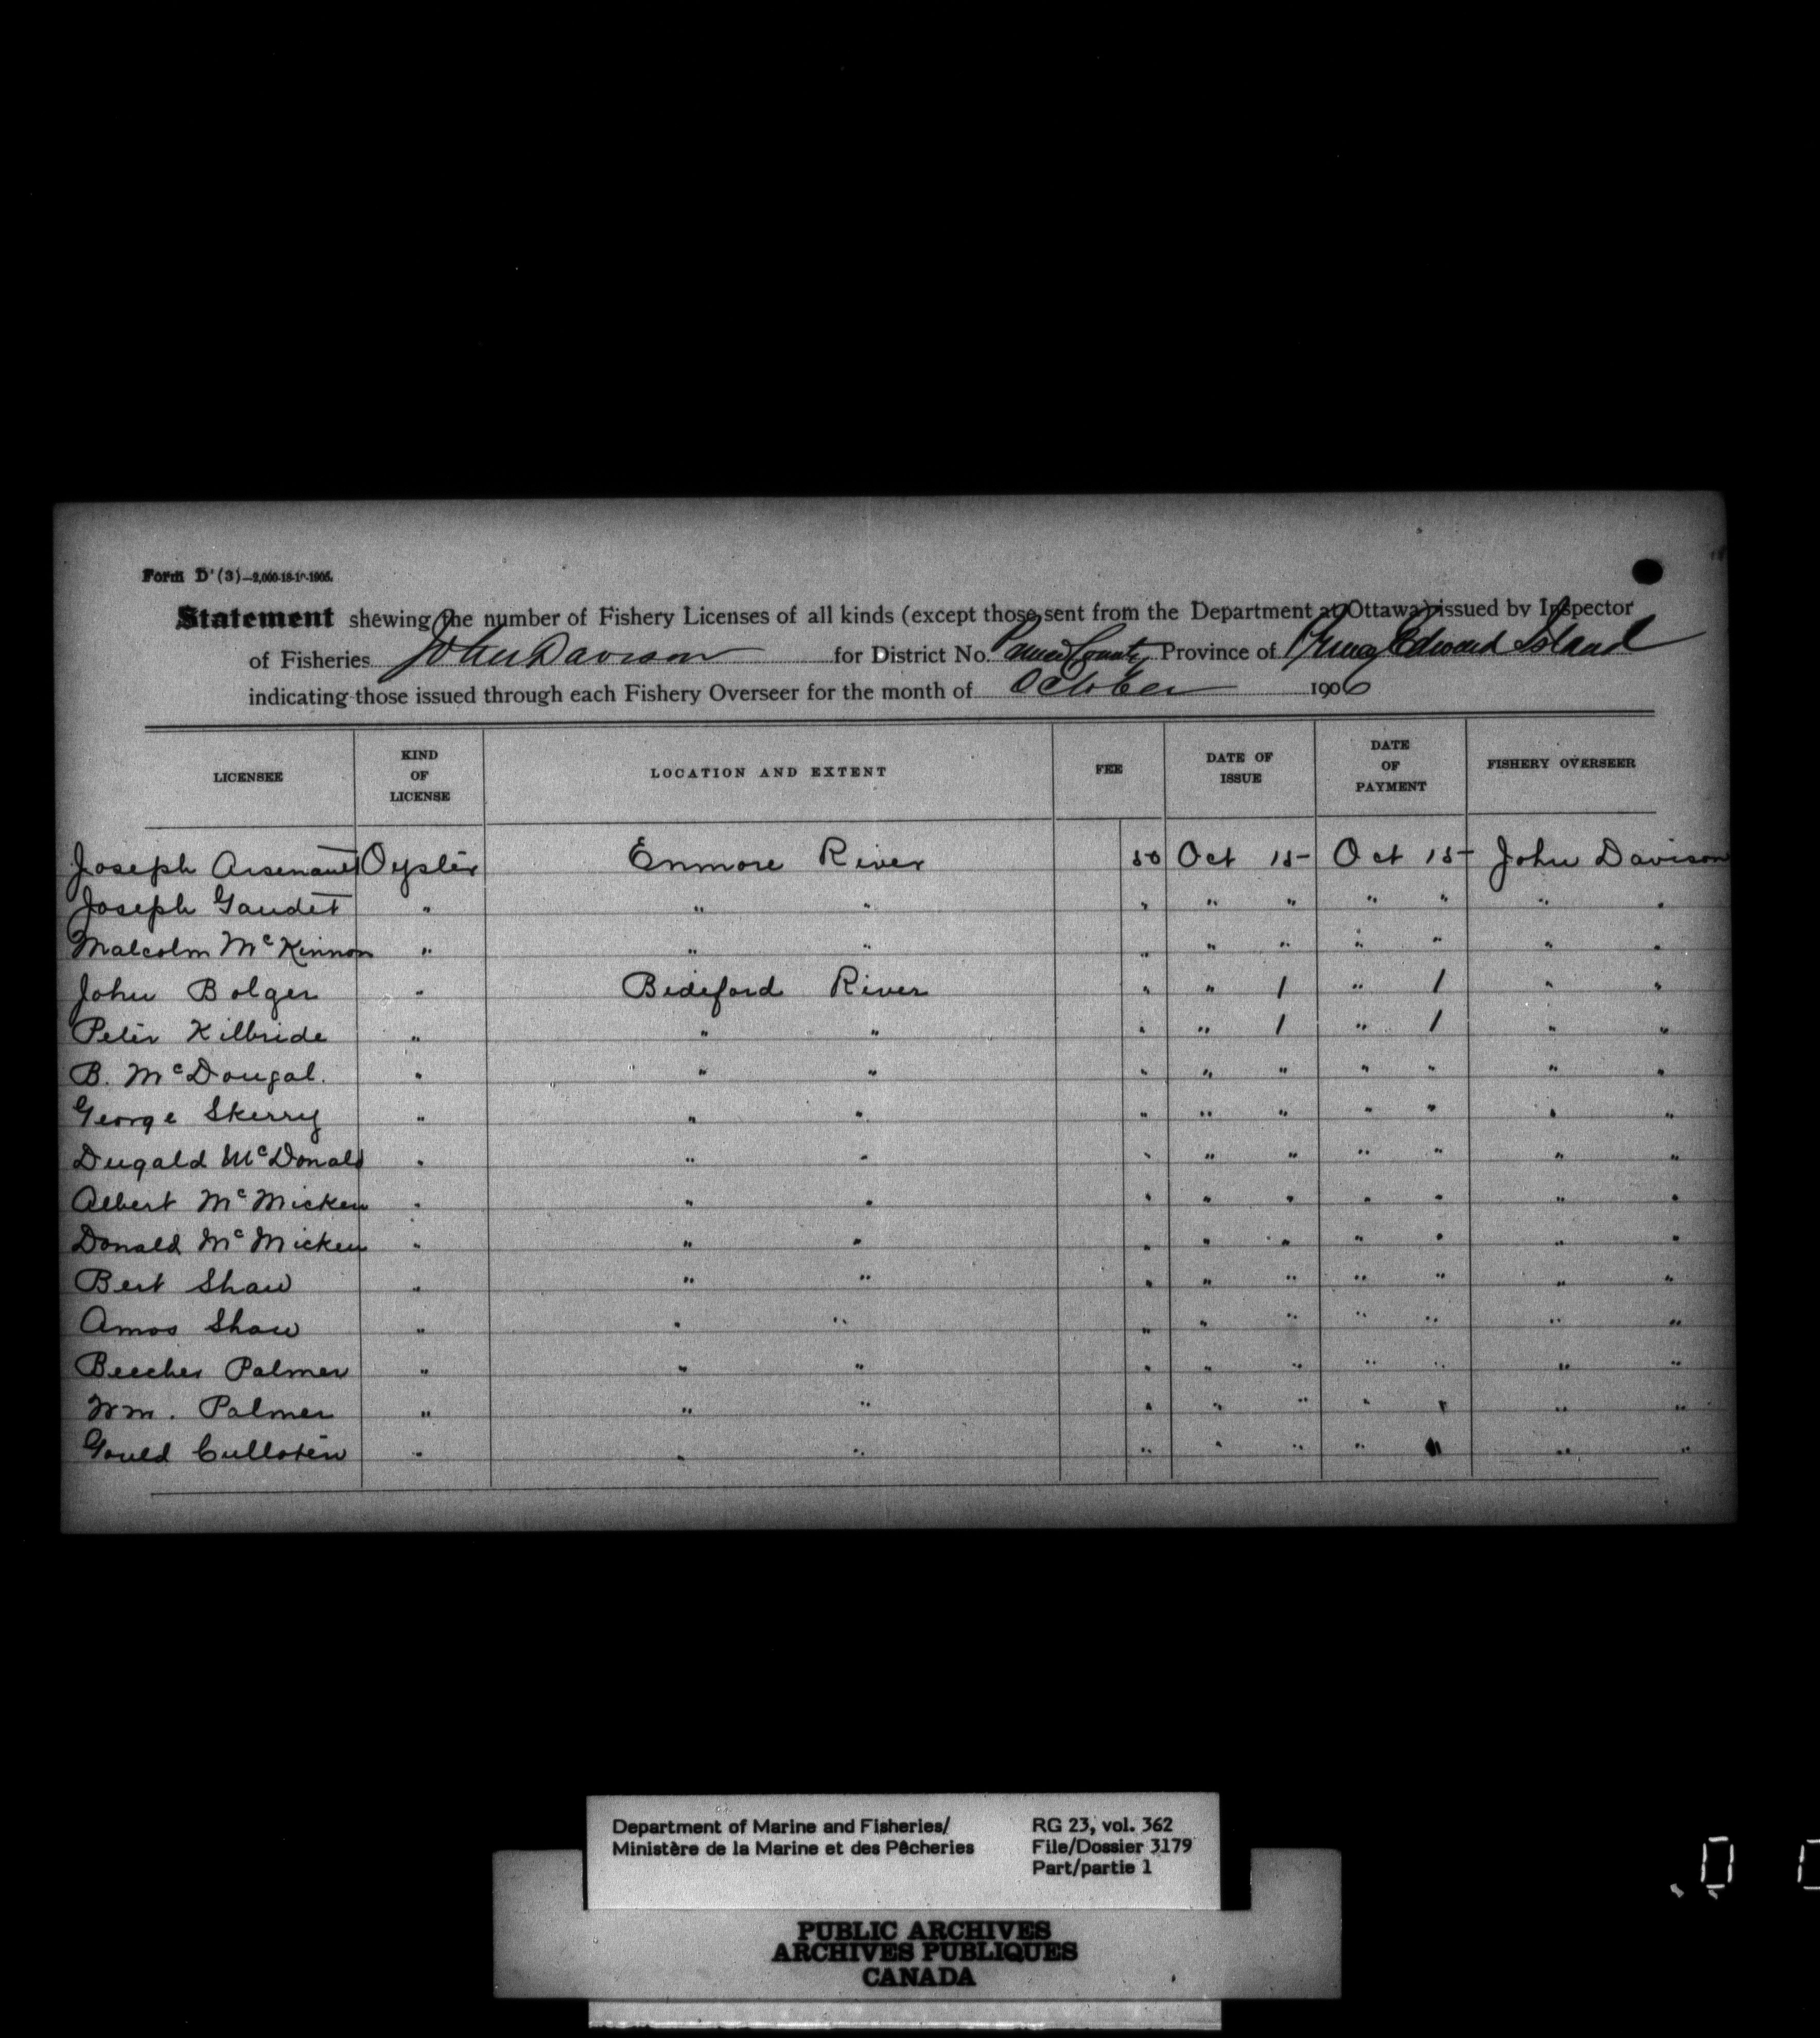 Form D (3)—2,000-18-10-1905.
Statement shewing the number of Fishery Licenses of all kinds (except those sent from the Department at Ottawa) issued by Inspector
of Fisheries John Davison for District No. Prince County Province of Prince Edward Island
indicating those issued through each Fishery Overseer for the month of October 1906
LICENSEE KIND OF LICENSE LOCATION AND EXTENT FEE DATE OF ISSUE DATE OF PAYMENT FISHERY OVERSEER
Joseph Arsenault Oyster Enmore River 50 Oct 15 Oct 15 John Davison
Joseph Gaudet " " " " " " " " " "
Malcolm McKinnon " " " " " " " " " "
John Bolger " Bideford River " " 1 " 1 " "
Peter Kilbride " " " " " 1 " 1 " "
B. McDougal. " " " " " " " " " "
George Skerry " " " " " " " " " "
Dugald McDonald " " " " " " " " " "
Albert McMicken " " " " " " " " " "
Donald McMicken " " " " " " " " " "
Bert Shaw " " " " " " " " " "
Amos Shaw " " " " " " " " " "
Beecher Palmer " " " " " " " " " "
Wm. Palmer " " " " " " " " " "
Gould Culloten " " " " " " " " " "
Department of Marine and Fisheries/ RG 23, vol. 362
Ministère de la Marine et des Pêcheries File/Dossier 3179
Part/partie 1
PUBLIC ARCHIVES
ARCHIVES PUBLIQUES
CANADA